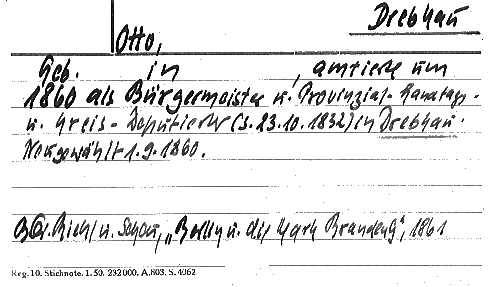 Drebkau
Otto,
Geb. in , amtierte um
1860 als Bürgermeister u. Provinzial-Landtags-
u. Kreis-Deputierter (s. 23.10.1832) in Drebkau.
Neugewählt 1.9.1860.
Riehl u. Scheu, „Berlin u. die Mark Brandenbg", 1861
Reg. 10. Stichnote. 1. 50. 232000. A. 803. S. 4062